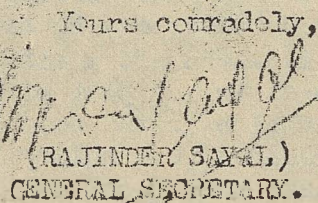 Yours comradely,
(RAJINDER SAYAL)
GENERAL SECRETARY.